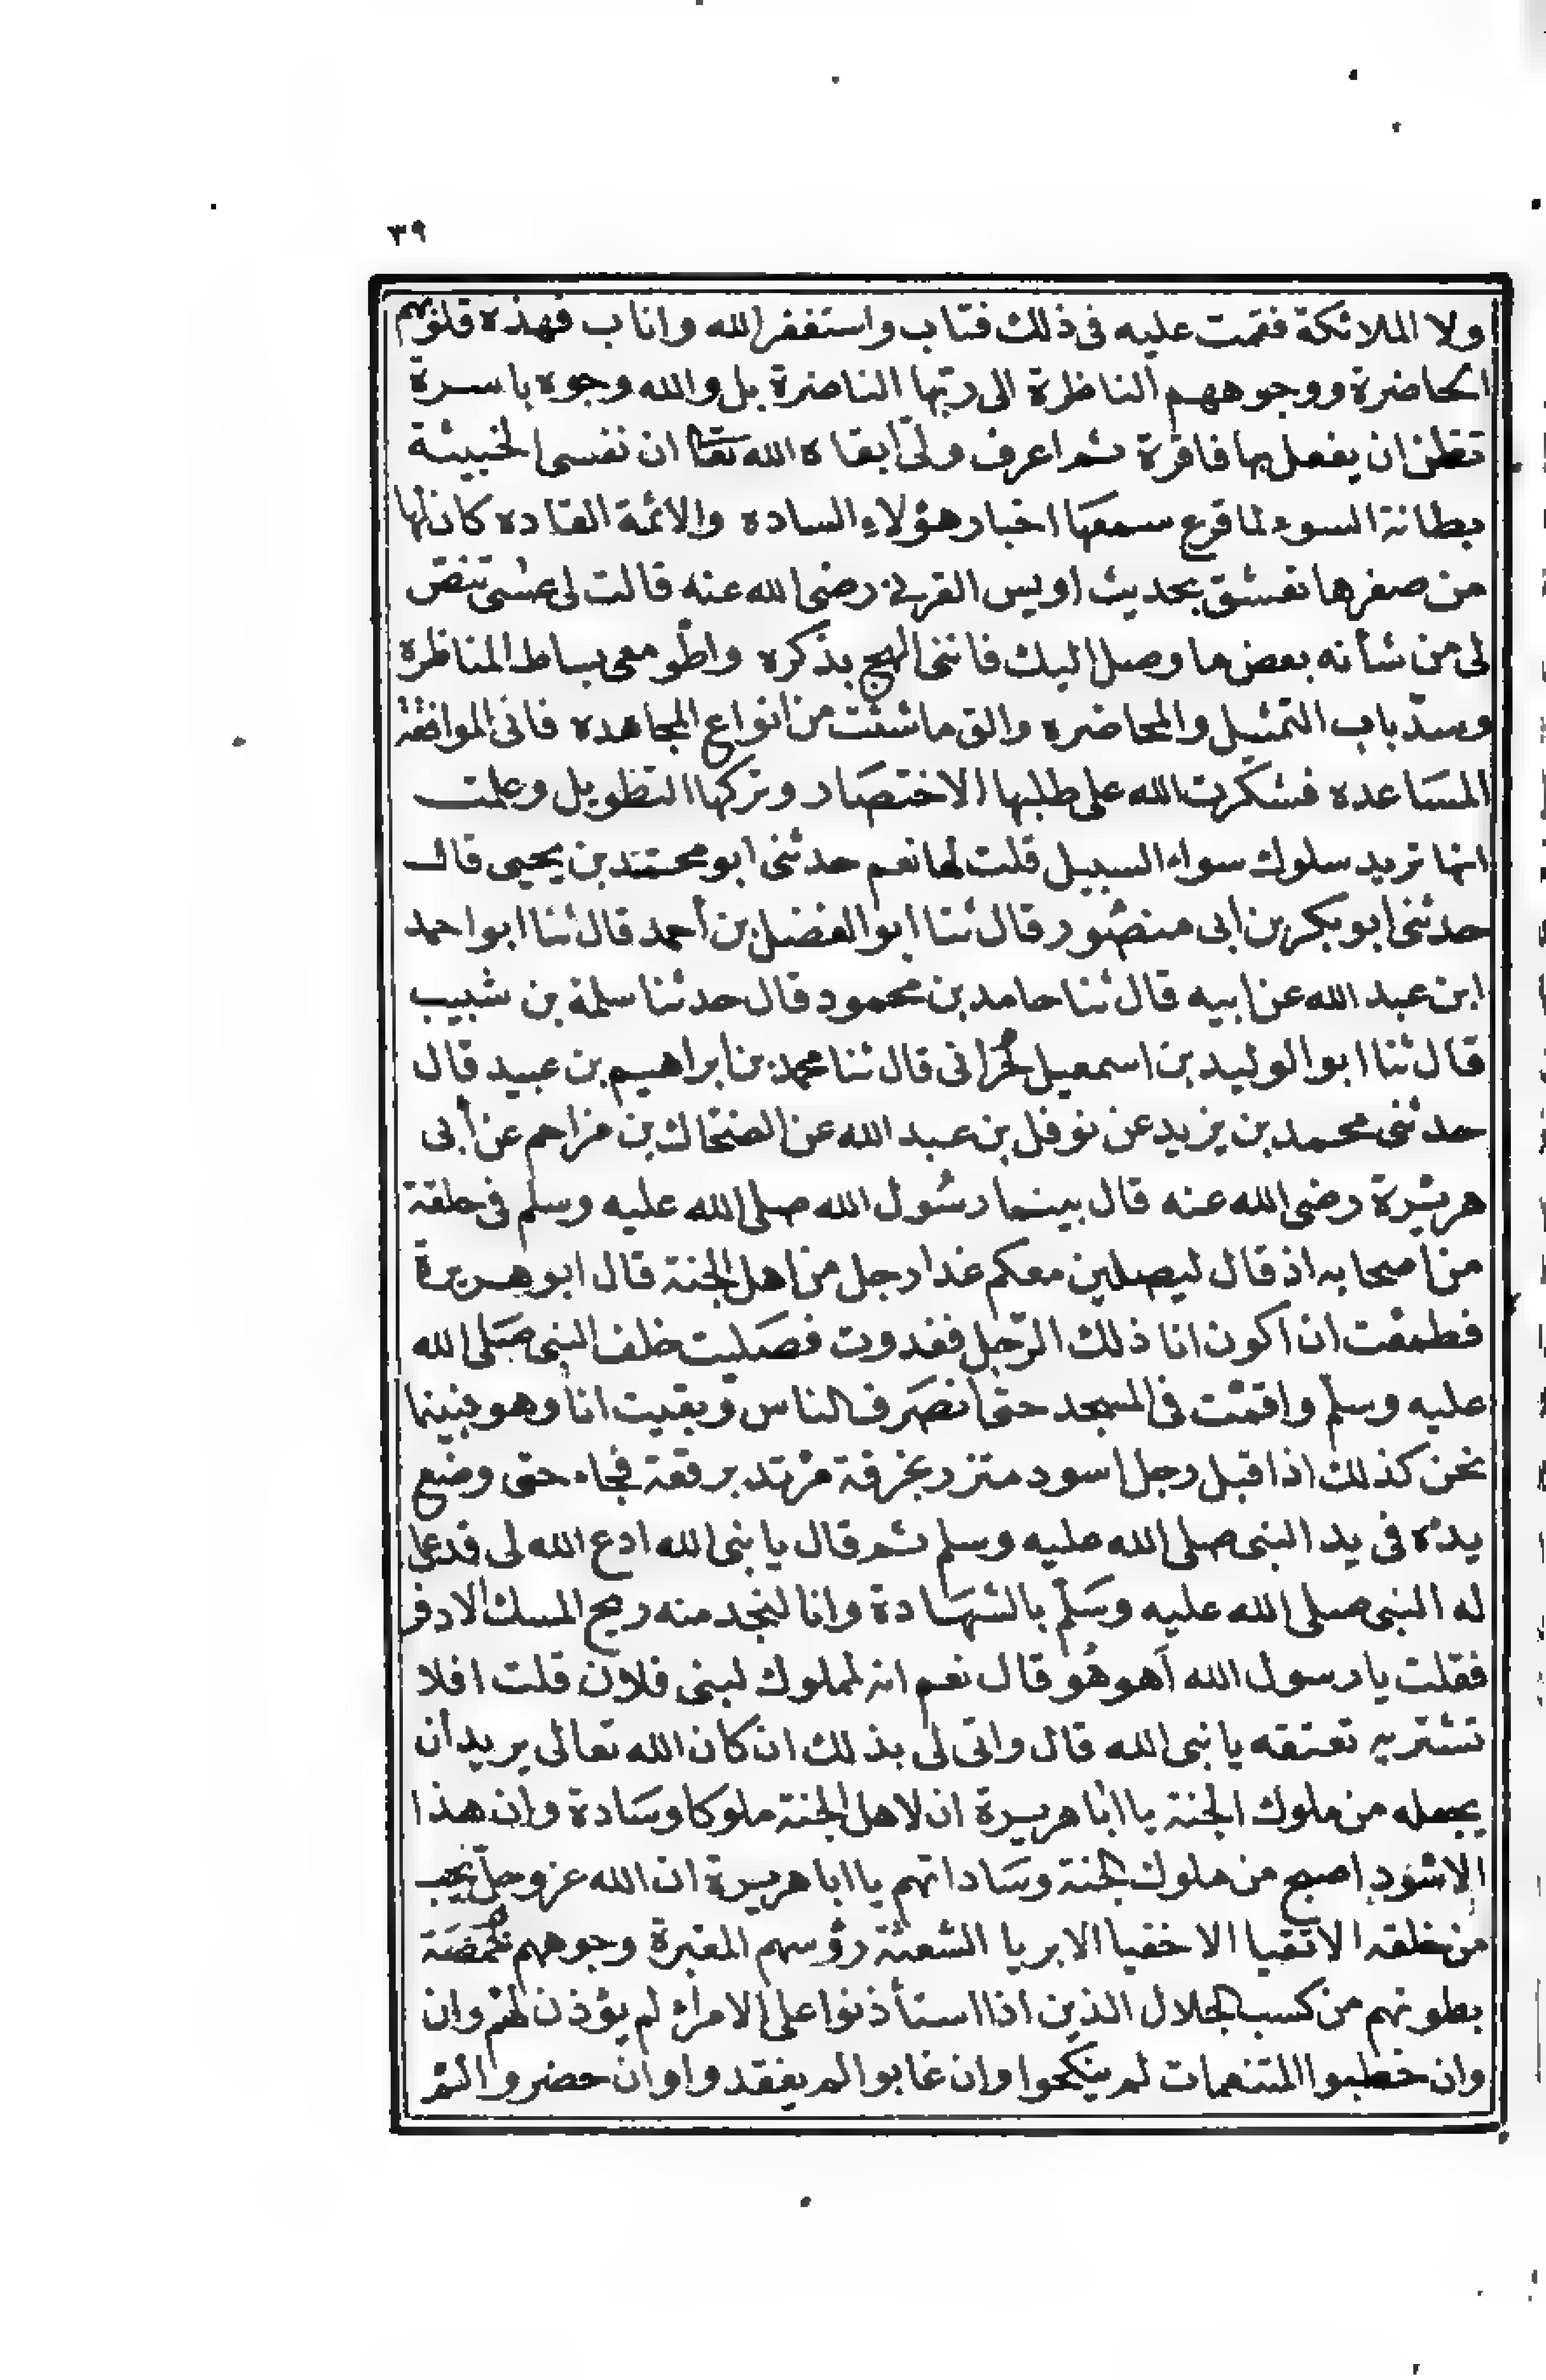 ٣٩
ولا الملائكة فقمت عليه فى ذلك فتاب واستغفر الله واناب فهذه قلوبهم
الحاضرة ووجوههم الناظرة الى ربّها الناضرة بل والله وجوه باسرة
تظن ان يفعل بها فاقرة ثم اعرف ولىّ ابقاه الله تعا ان نفسى الخبيثة
بطانة السوء لما قرع سمعها اخبار هؤلاء الساده والائمة القاده كانها
من صغرها تعشق بحديث اويس القرنى رضى الله عنه قالت لى عسى تنص
لى من شأنه بعض ما وصل اليك فاننى الهج بذكره واطو معى بساط المناظرة
وسدّ باب التمثيل والمحاضره والق ما شئت من انواع المجاهده فانى الموافقة
المساعده فشكرت الله على طلبها الاختصار وتركها التطويل وعلمت
انها تريد سلوك سواء السبيل قلت لها نعم حدثنى ابو محمّد بن يحيى قال
حدثنى ابو بكر بن أبى منصور قال ثنا ابو الفضل بن أحمد قال ثنا ابو احمد
ابن عبد الله عن ابيه قال ثنا حامد بن محمود قال حدثنا سلمة بن شبيب
قال ثنا ابو الوليد بن اسمعيل الحرانى قال ثنا محمد بن ابراهيم بن عبيد قال
حدثنى محمد بن يزيد عن نوفل بن عبد الله عن الضحّاك بن مزاحم عن أبى
هريرة رضى الله عنه قال بينما رسول الله صلى الله عليه وسلم فى حلقة
من اصحابه اذ قال ليصلين معكم غدا رجل من اهل الجنة قال ابو هريرة
فطمعت ان اكون انا ذلك الرّجل فغدوت فصليت خلف النبى صلى الله
عليه وسلم واقمت فى المسجد حتى انصرف الناس وبقيت انا وهو فبينما
نحن كذلك اذ اقبل رجل اسود متزر بخرقة مرتد برقعة فجاء حتى وضع
يده فى يد النبى صلى الله عليه وسلم ثم قال يا نبى الله ادع الله لى فدعا
له النبى صلى الله عليه وسلّم بالشهادة وانا لنجد منه ريح المسك الادفر
فقلت يا رسول الله أهو هو قال نعم انه لمملوك لبنى فلان قلت افلا
تشتريه تعتقه يا نبى الله قال وانى لى بذلك ان كان الله تعالى يريد أن
يجعله من ملوك الجنة يا ابا هريرة ان لاهل الجنة ملوكا وسادة وان هذا
الاسود اصبح من ملوك الجنة وساداتهم يا ابا هريرة ان الله عز وجل يحب
من خلقه الاتقيا الاخفيا الابريا الشعثة رؤسهم المغبرة وجوههم المخمصة
بطونهم من كسب الحلال الذين اذا استأذنوا على الامراء لم يؤذن لهم وان
وان خطبوا المتنعمات لم ينكحوا وان غابوا لم يفقدوا وان حضروا لم